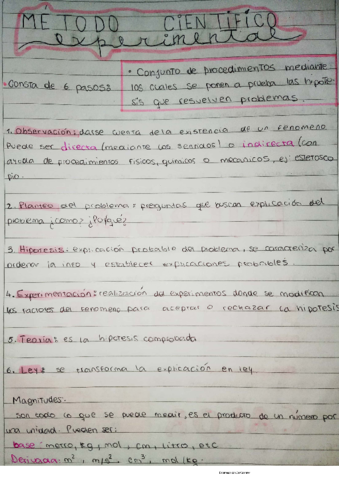 MÉTODO CIENTIFÍCO
experimental
• Consta de 6 pasos:
• Conjunto de procedimientos mediante
los cuales se ponen a prueba las hipote
sis que resuelven problemas.
1. Observación: darse cuenta de la existencia de un fenomeno
Puede ser directa (mediante los sentidos) o indirecta (con
ayuda de procedimientos fisicos, quimicos o mecanicos, ej: estetosco
pio.
2. Planteo del problema: preguntas que buscan explicación del
problema ¿como? ¿Porqué?
3. Hipotesis: explicación probable del problema, se caracteriza por
ordenar la info y establecer explicaciones probables.
4. Experimentación: realización del experimentos donde se modifican
los factores del fenomeno para aceptar o rechazar la hipotesis
5. Teoria: es la hipotesis comprobada
6. Ley: se transforma la explicación en ley.
Magnitudes:
son todo lo que se puede medir, es el producto de un número por
una unidad. Pueden ser:
base: metro, kg, mol, cm, litro, etc
Derivada: m², m/s², cm³, mol/kg.